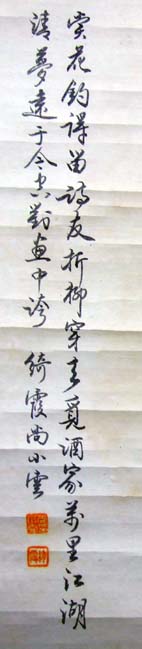 賞花釣得留詩友折柳穿魚覓酒家萬里江湖
清夢遠于今空對畫中誇 綺霞尚小雲